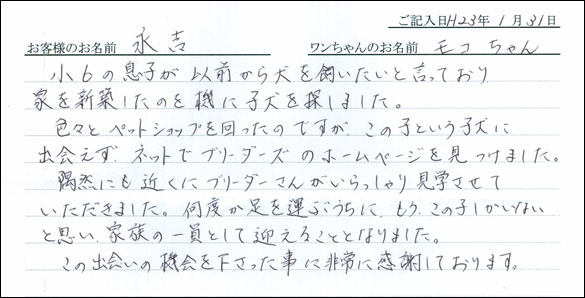 ご記入日H23年1月31日
お客様のお名前 永吉 ワンちゃんのお名前 モコちゃん
小6の息子が以前から犬を飼いたいと言っており
家を新築したのを機に子犬を探しました。
色々とペットショップを回ったのですが、この子という子犬に
出会えず、ネットでブリーダーズのホームページを見つけました。
隅然にも近くにブリーダーさんがいらっしゃり見学させて
いただきました。何度か足を運ぶうちに、もう、この子しかいない
と思い、家族の一員として迎えることとなりました。
この出会いの機会を下さった事に非常に感謝しております。